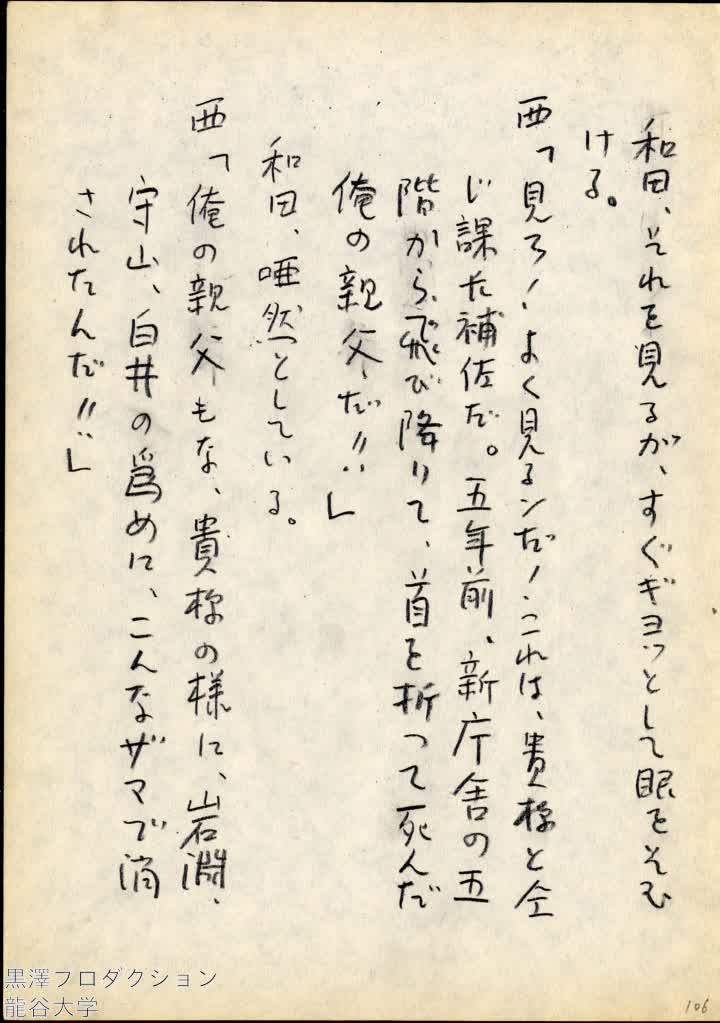 和田、それを見るが、すぐギヨッとして眼をそむ
ける。
西「見ろ！よく見るンだ！これは、貴様と仝
じ課た補佐だ。五年前、新庁舎の五
階から飛び降りて、首を折つて死んだ
俺の親父だ!!」
和田、唖然としている。
西「俺の親父もな、貴様の様に、岩淵、
守山、白井の為めに、こんなザマで消
されたんだ!!」
106
黒澤プロダクション
龍谷大学